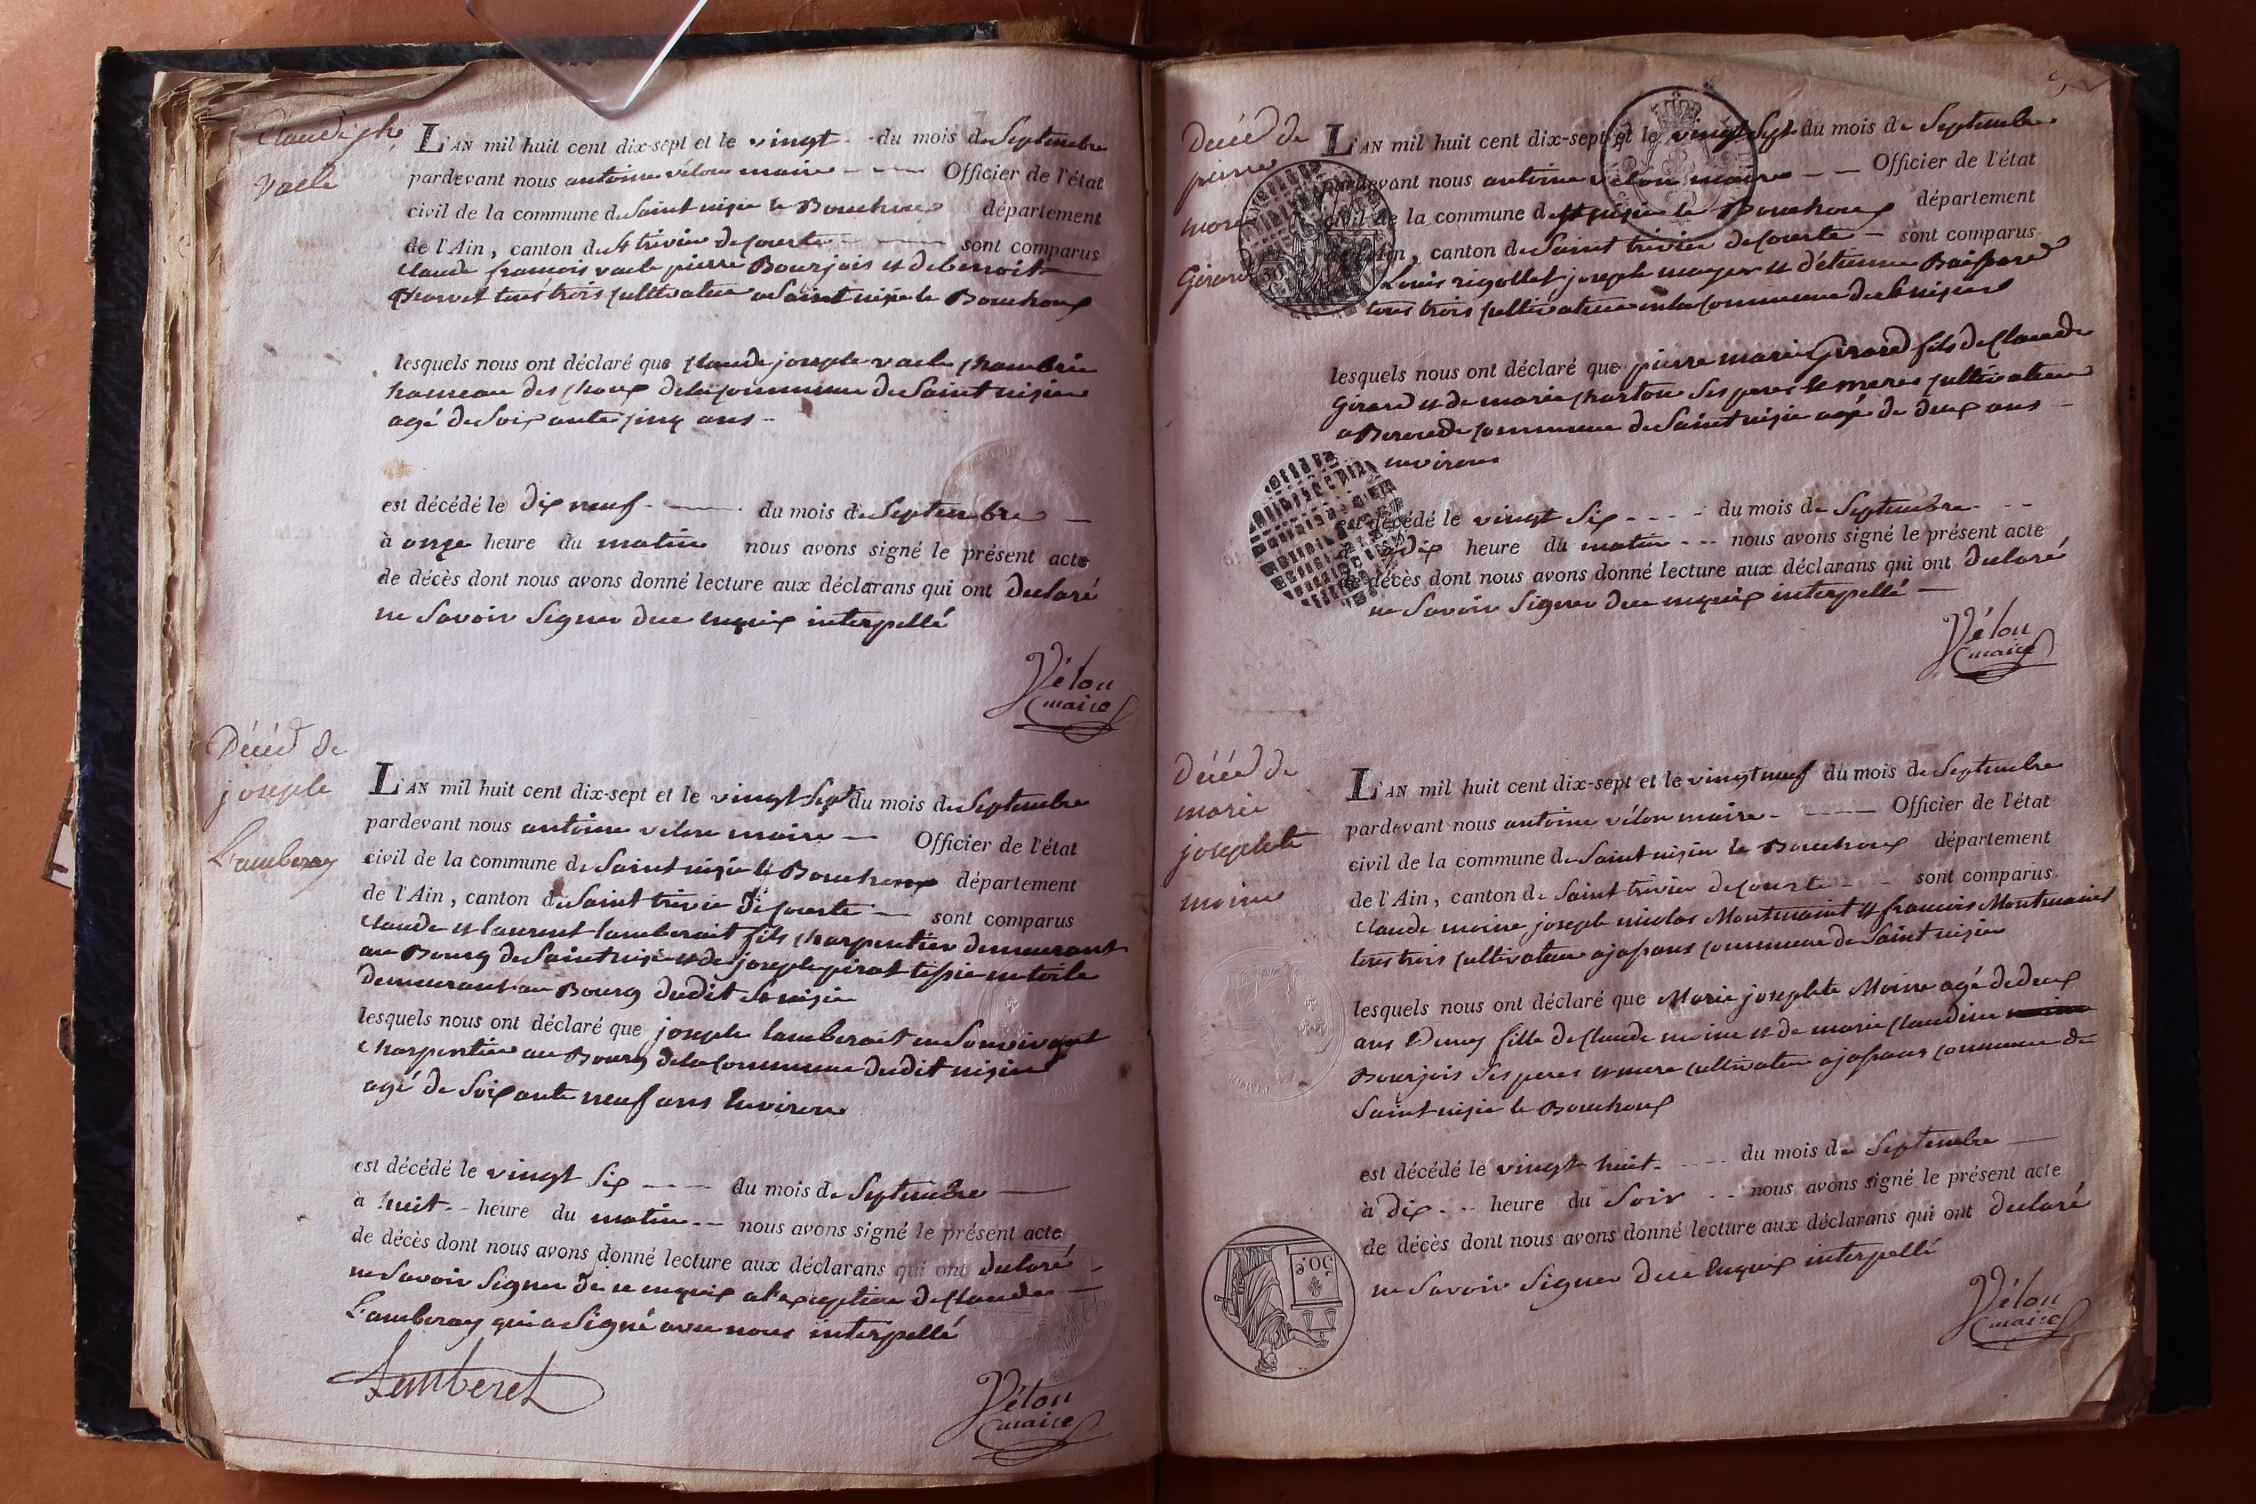 Claude jph
vacle
L'AN mil huit cent dix-sept et le vingt - du mois de Septembre
pardevant nous antoine vélon maire - - - Officier de l'état
civil de la commune de Saint nizier le Bouchoux département
de l'Ain, canton de St trivier de courte - - sont comparus
Claude francois vacle pierre Bourjois et de benoit
tous trois cultivateur a Saint nizier le Bouchoux
lesquels nous ont déclaré que Claude joseph vacle
hameau des choux de la commune de Saint nizier
agé de Soixante cinq ans -
est décédé le dix neuf - - du mois de Septembre -
à onze heure du matin nous avons signé le présent acte
de décès dont nous avons donné lecture aux déclarans qui ont declaré
ne Savoir Signer de ce enquix interpellé
Vélon
maire
Décéd de
joseph
Lamberay
L'AN mil huit cent dix-sept et le vingt Sept du mois de Septembre
pardevant nous antoine vélon maire - Officier de l'état
civil de la commune de Saint nizier le Bouchoux département
de l'Ain, canton de Saint trivier de courte - sont comparus
Claude et laurent lamberait fils charpentier demeurant
au Bourg de Saint nizier et de joseph pirat tissie en toile
demeurant au Bourg dudit St nizier
lesquels nous ont déclaré que joseph lamberait en Son vivant
Charpentier au Bourg de la commune dudit nizier
agé de Soixante neuf ans Environ
est décédé le vingt Six - - - du mois de Septembre -
à huit - heure du matin - - nous avons signé le présent acte
de décès dont nous avons donné lecture aux déclarans qui ont declaré
ne Savoir Signer de ce enquix a l'exception de Claude -
Lamberay qui a Signé avec nous interpellé
Lamberet
Vélon
maire
Décéd de
pierre
mari
Girard
L'AN mil huit cent dix-sept et le vingt Sept du mois de Septembre
pardevant nous antoine vélon maire - - Officier de l'état
civil de la commune de St nizier le Bouchoux département
de l'Ain, canton de Saint trivier de courte - sont comparus
Louis rigollet joseph mayer et d'étienne Baissard
tous trois cultivateur en la commune de St nizier
lesquels nous ont déclaré que pierre marie Girard fils de Claude
Girard et de marie charton Ses peres et meres cultivateur
a commune de Saint nizier agé de deux ans -
environ
est décédé le vingt Six - - - du mois de Septembre - -
à dix heure du matin - - nous avons signé le présent acte
de décès dont nous avons donné lecture aux déclarans qui ont declaré
ne Savoir Signer de ce enquix interpellé -
Vélon
maire
Décéd de
marie
josephte
moine
L'AN mil huit cent dix-sept et le vingt neuf du mois de Septembre
pardevant nous antoine vélon maire - - - Officier de l'état
civil de la commune de Saint nizier le Bouchoux département
de l'Ain, canton de Saint trivier de courte - - sont comparus
Claude moine joseph nicolas Montmaint et francois Montmaint
tous trois cultivateur a jassans commune de Saint nizier
lesquels nous ont déclaré que Marie josephte Moine agé de deux
ans Demy fille de Claude moine et de marie Claudine
Bourjois Ses peres et mere cultivateur a jassans commune de
Saint nizier le Bouchoux
est décédé le vingt huit - - - du mois de Septembre -
à dix - - heure du Soir - - nous avons signé le présent acte
de décès dont nous avons donné lecture aux déclarans qui ont declaré
ne Savoir Signer de ce Enquix interpellé
Vélon
maire
50 c